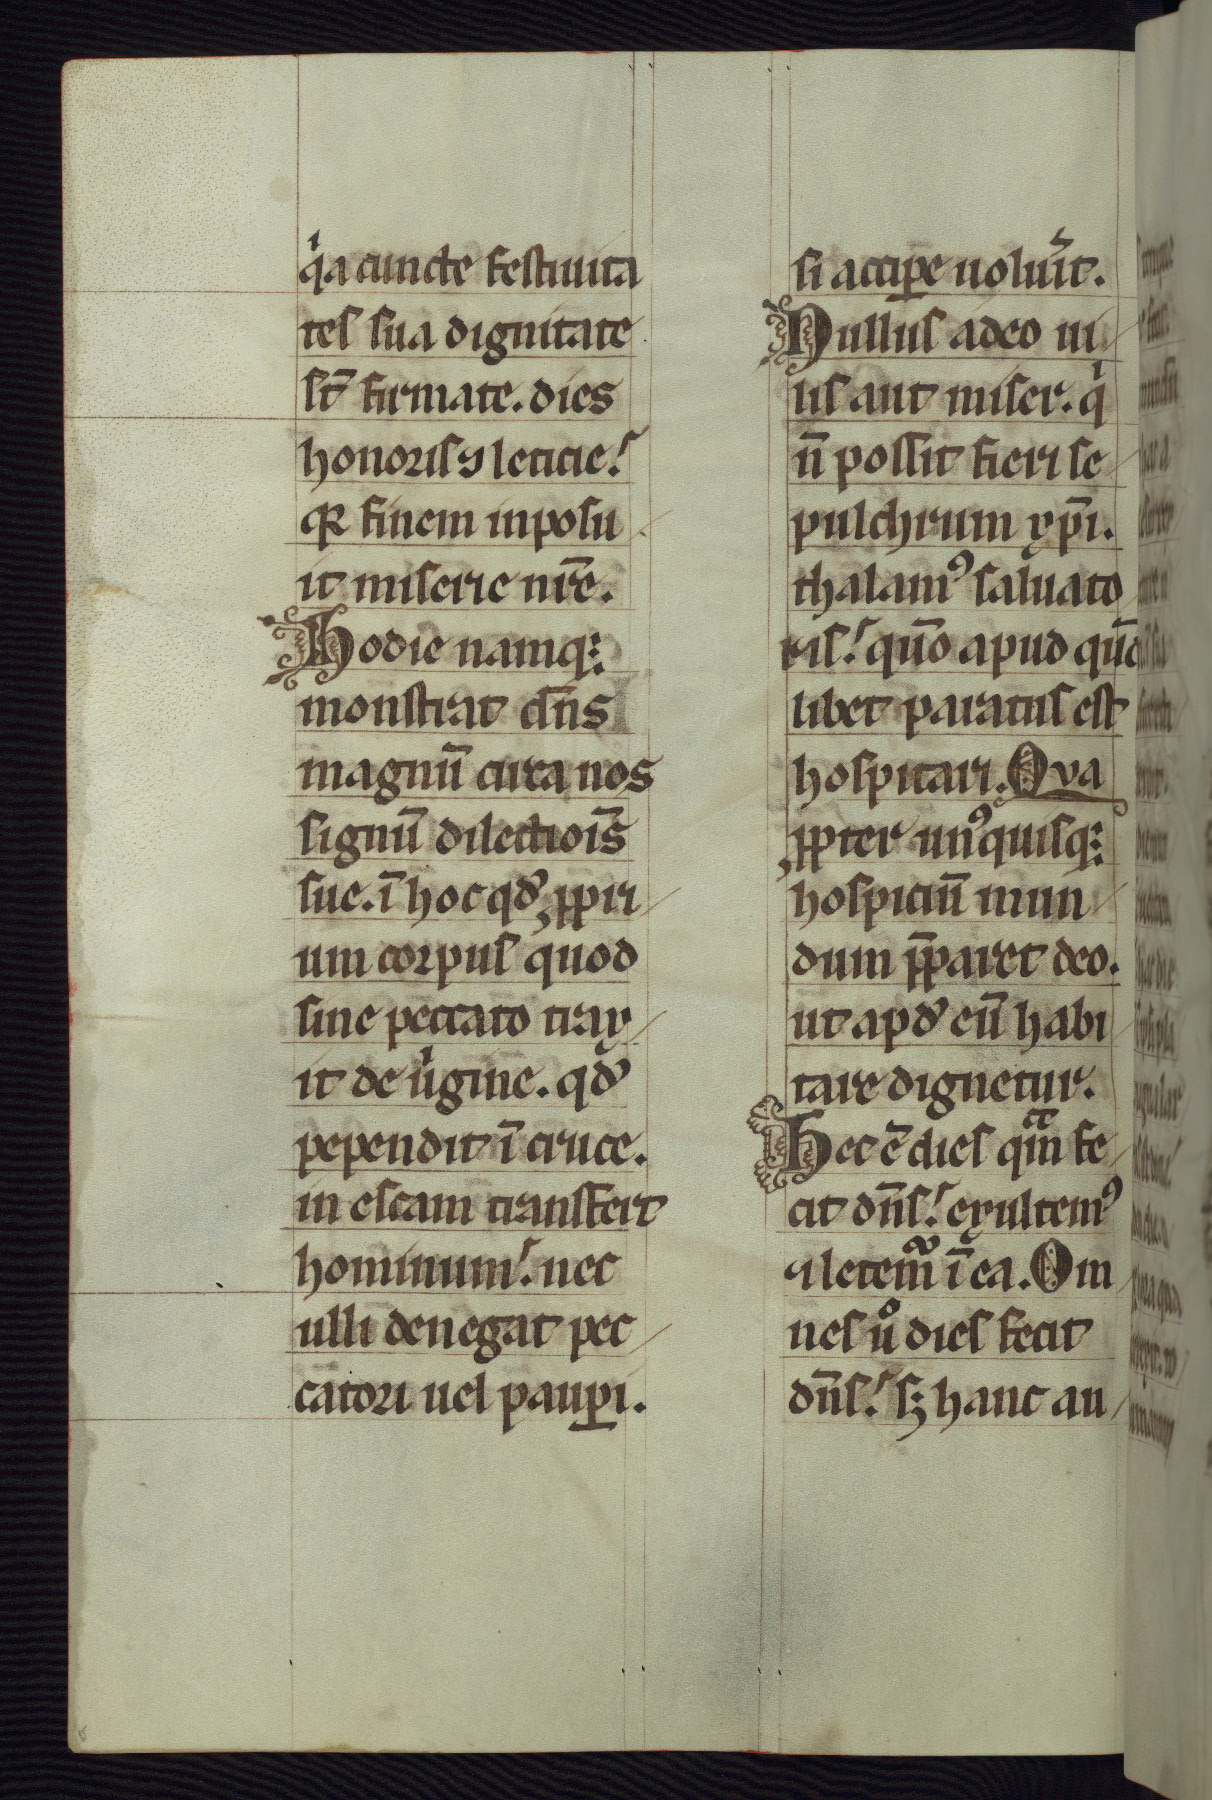 qͥa cuncte festiuita
tes sua dignitate
st̄ firmate. dies
honoris ⁊ leticie.
qꝛ finem inposu
it miserie nr̄e.
Hodie namqꝫ
monstrat dn̄s
magnū circa nos
signū dilectiois̄
sue. ī hoc qd̓ ꝓpri
um corpus quod
sine peccato trax
it de uͥgine. qd̓
pependit ī cruce.
in escam transfert
hominum. nec
ulli denegat pec
catori uel pauꝑi.
si acciꝑe uolūit.
Nullus adeo ui
lis aut miser. qͥ
n̄ possit fieri se
pulchrum xp̄i.
thalamꝰ saluato
ris. qūo apud qūd
libet paratus est
hospitari. Qva
ꝓpter unꝰquisqꝫ
hospiciū mun
dum p̄paret deo.
ut apd̓ eū habi
tare dignetur.
Hec ē dies qͣm fe
cit dn̄s. exultemꝰ
⁊ letemͬ ī ea. Om
nes uͦ dies fecit
dn̄s. sꝫ hanc au